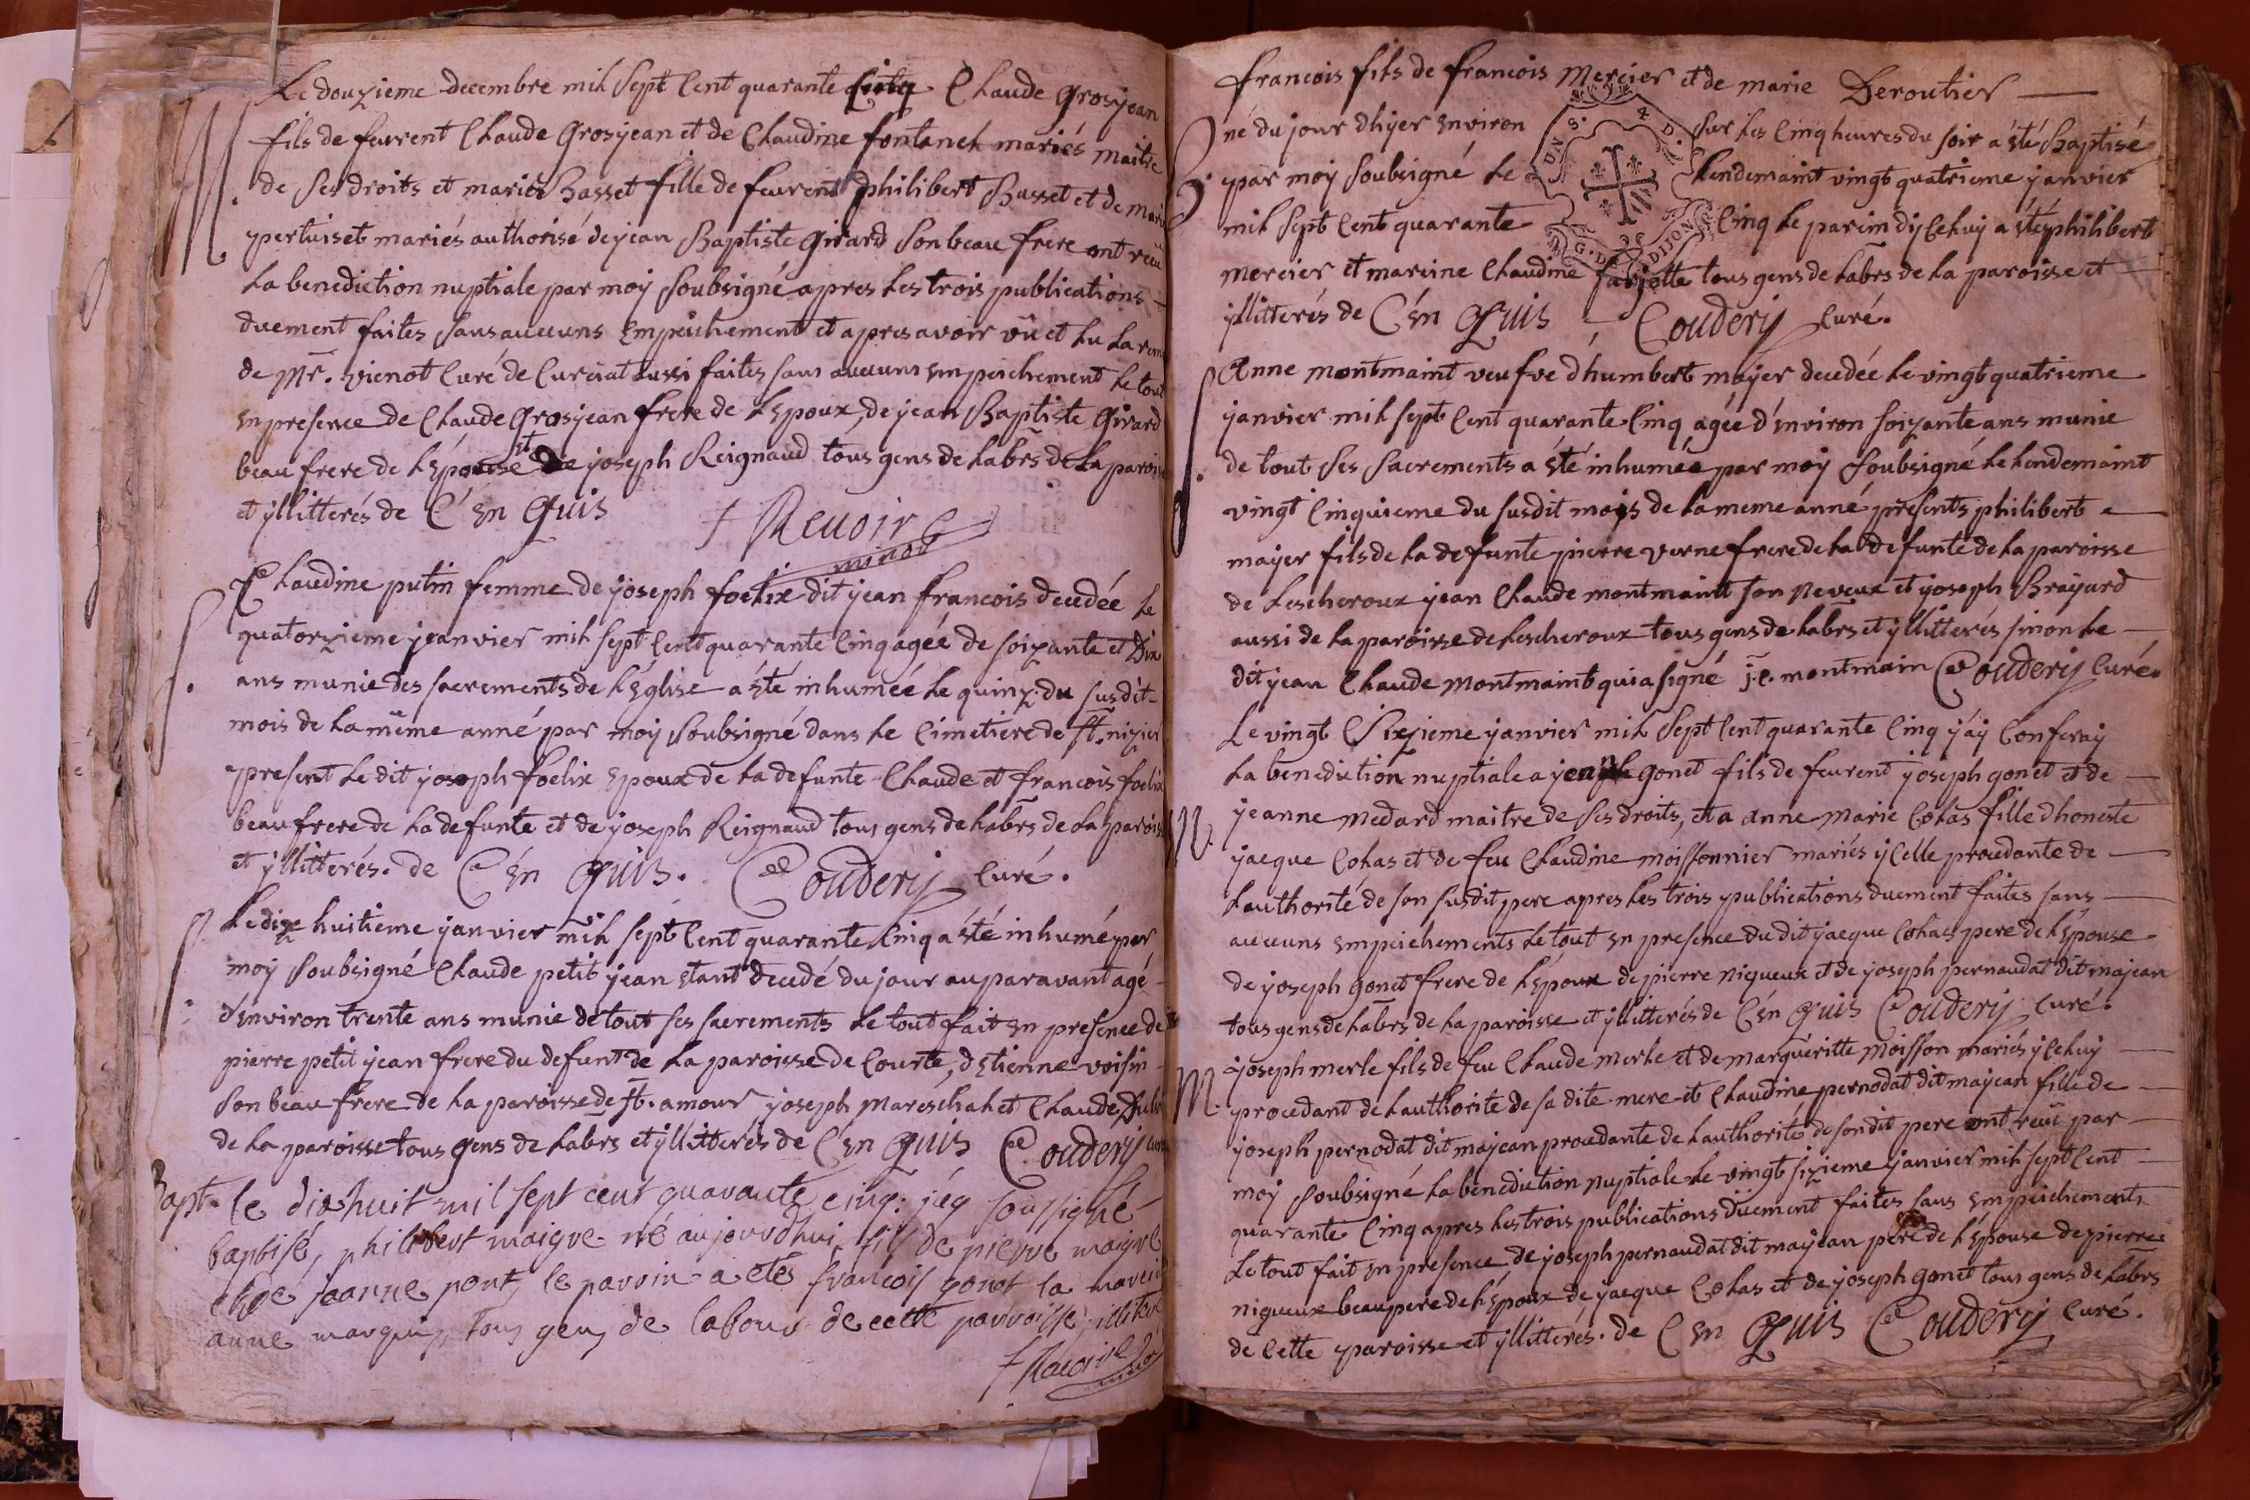 Le douzieme decembre mil sept Cent quarante Cinq Claude Grosjean
M. fils de feurent Claude Grosyean et de Claudine fontanel mariés maitre
de ses droits et marie Basset fille de feurent philibert Basset et de marie
pertuiset mariés authorisé de yean Baptiste Girard son beau frere ont receu
La benediction nuptiale par moy Soubsigné apres les trois publications
duement faites sans aucuns Empeichement et apres avoir vû et lu la
de Mr. vienot Curé de Curciat aussi faites sans aucuns empeichement le tout
en presence de Claude Grosyean frere de L'Epoux, de yean Baptiste Girard
beau frere de L'Epouse et de joseph Reignaud tous gens de Labrs de La paroisse
et yllitterés de C'en Quis Revoire
Claudine putin femme de joseph foelix dit yean francois decedée le
quatorzieme yeanvier mil sept Cent quarante Cinq agée de soixante et Dix
S. ans munie des sacrements de L'Eglise a été inhumée le quinz. du susdit
mois de La même anné par moy Soubsigné dans le Cimetiere de St. nizier
present Le dit joseph foelix Epoux de La defunte Claude et francois foelix
beau frere de La defunte et de joseph Reignaud tous gens de Labrs de La paroisse
et yllitterés. de C'en Quis. Coudery Curé.
Le dixe huitieme yanvier mil sept Cent quarante Cinq a été inhumé par
S. moy Soubsigné Claude petit yean etant decedé du jour auparavant agé
d'environ trente ans munie de tout ses sacrements Le tout fait en presence de
pierre petit yean frere du defunt de La paroisse de Courte, d'Etienne voisin
son beau frere de La paroisse de St. amour joseph Mareschal et Claude
de La paroisse tous gens de Labrs et yllitterés de C'en Quis Coudery Curé
Bapt. le dix huit mil sept cent quarante cinq. j'ey soussigné
baptisé, philibert maigre né aujourdhui, fils de pierre maigre
et de jeanne pont, le parrin a etés francois gonet la mareine
anne marquis, tous gens de labour de cette parroisse illiteré
Revoire
francois fils de francois Mercier et de marie Deroutier
B. né du jour dhyer Environ sur les Cinq heures du soir a été Baptisé
par moy Soubsigné Le Lendemaint vingt quatrieme yanvier
mil sept Cent quarante Cinq Le parein dyCeluy a été philibert
Mercier et mareine Claudine tous gens de Labrs de La paroisse et
yllitterés de C'en Quis Coudery Curé.
Anne montmaint veufve d'humbert mayer decedée Le vingt quatrieme
yanvier mil sept Cent quarante Cinq agée d'Environ soixante ans munie
S. de tout ses sacrements a été inhumée par moy Soubsigné Le Lendemaint
vingt Cinquieme du susdit mois de La meme anné présents philibert
mayer fils de La defunte pierre verne frere de La defunte de La paroisse
de Lescheroux yean Claude montmaint son neveux et joseph Brayard
aussi de La paroisse de Lescheroux tous gens de Labrs et yllitterés sinon Le
dit yean Claude Montmaint qui a signé j. c. montmain Coudery Curé.
Le vingt Sixieme yanvier mil Sept Cent quarante Cinq j'ay Conferay
La benediction nuptiale a gonet fils de feurent joseph gonet et de
M. yeanne Medard maitre de ses droits, et a anne Marie Colas fille dhoneste
yacque Colas et de feu Claudine moissonnier mariés yCelle procedante de
Lauthorite de son susdit pere apres les trois publications duement faites sans
aucuns Empeichements Le tout en presence du dit yacque Colas pere de L'Epouse
de joseph gonet frere de L'Epoux de pierre nigueux et de joseph pernaudat dit majean
tous gens de Labrs de La paroisse et yllitterés de C'en Quis Coudery Curé.
joseph merle fils de feu Claude merle et de marguéritte Moisson mariés yCeluy
M. procedant de Lauthorite de sa dite mere et Claudine pernodat dit majean fille de
joseph pernodat dit majean procedante de Lauthorité de son dit pere ont reçu par
moy Soubsigné La benediction Nuptiale Le vingt sixieme yanvier mil sept Cent
quarante Cinq apres Les trois publications duement faites sans Empeichements
Le tout fait en presence de joseph pernaudat dit mayean pere de L'Epouse de pierre
nigueux beaupere de L'Epoux de yacque Colas et de joseph gonet tous gens de Labrs
de Cette paroisse et yllitterés. de C'en Quis Coudery Curé.